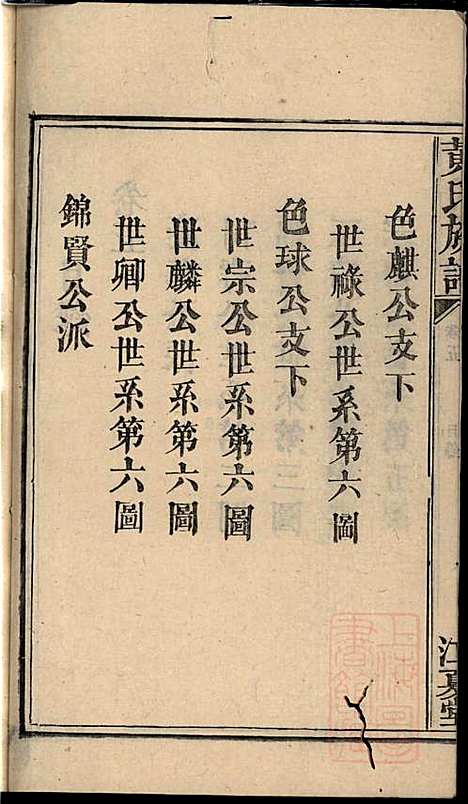 黃氏族譜
色麒公支下
世祿公世系第六圖
色球公支下
世宗公世系第六圖
世麟公世系第六圖
世卿公世系第六圖
錦賢公派
江夏堂